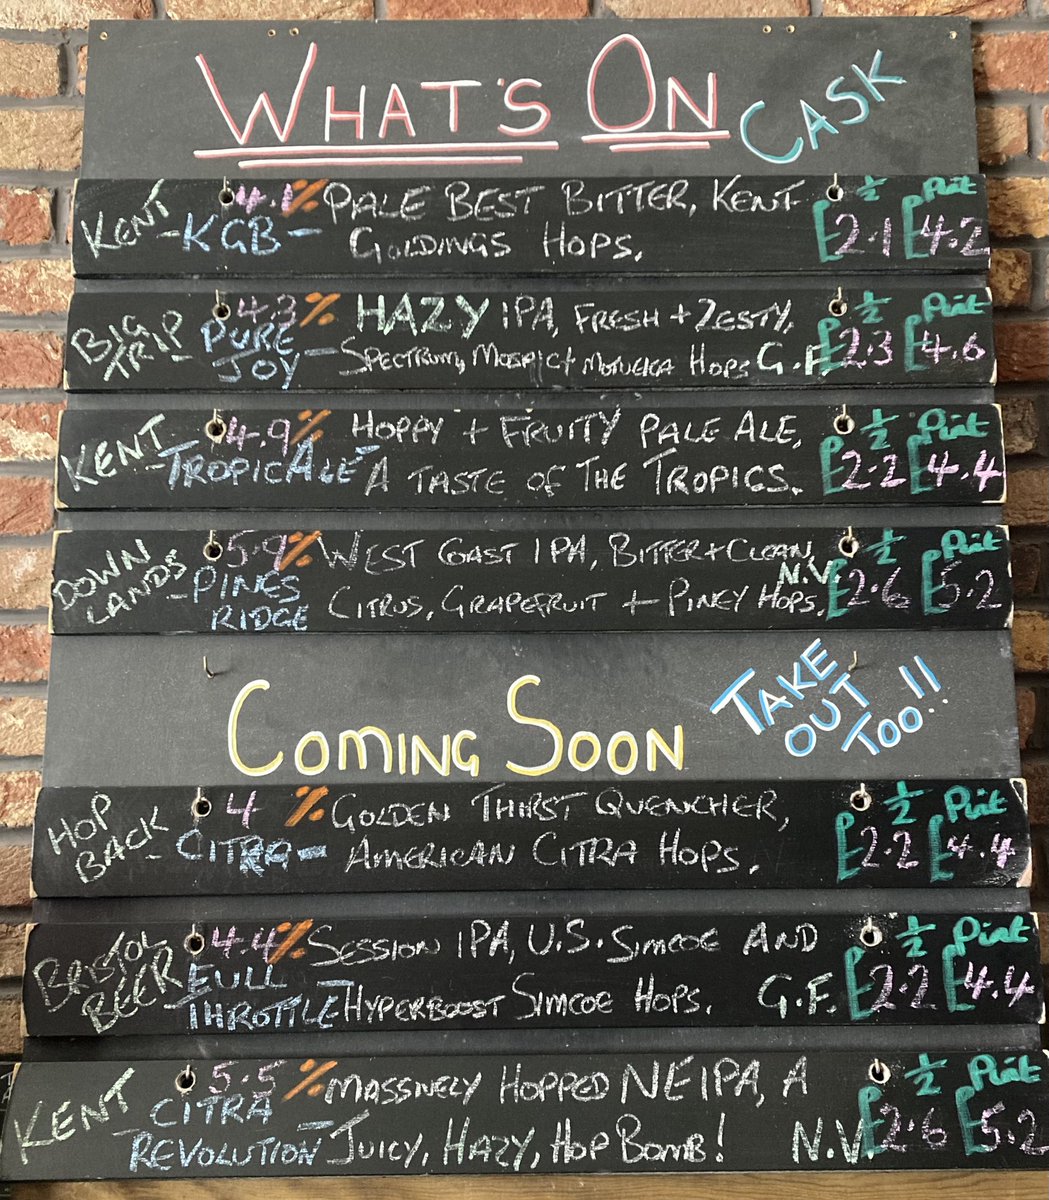 WHAT'S ON CASK
KENT 4.1% PALE BEST BITTER, KENT ½ Pint
-KGB- GOLDINGS HOPS. £2.1 £4.2
BIG TRIP 4.3% HAZY IPA, FRESH + ZESTY, ½ Pint
- PURE JOY - SPECTRUM, MOSAIC + MOTUEKA HOPS G.F. £2.3 £4.6
KENT 4.9% HOPPY + FRUITY PALE ALE, ½ Pint
-TROPICALE- A TASTE OF THE TROPICS. £2.2 £4.4
DOWNLANDS 5.9% WEST COAST IPA, BITTER + CLEAN, ½ Pint
- PINES RIDGE CITRUS, GRAPEFRUIT + PINEY HOPS, N.V. £2.6 £5.2
COMING SOON
TAKE
OUT
TOO!!
HOP BACK 4% GOLDEN THIRST QUENCHER, ½ Pint
- CITRA - AMERICAN CITRA HOPS. £2.2 £4.4
BRISTOL BEER 4.4% SESSION IPA, U.S. SIMCOE AND ½ Pint
- FULL THROTTLE - HYPERBOOST SIMCOE HOPS. G.F. £2.2 £4.4
KENT 5.5% MASSIVELY HOPPED NEIPA, A ½ Pint
- CITRA REVOLUTION - JUICY, HAZY, HOP BOMB! N.V. £2.6 £5.2